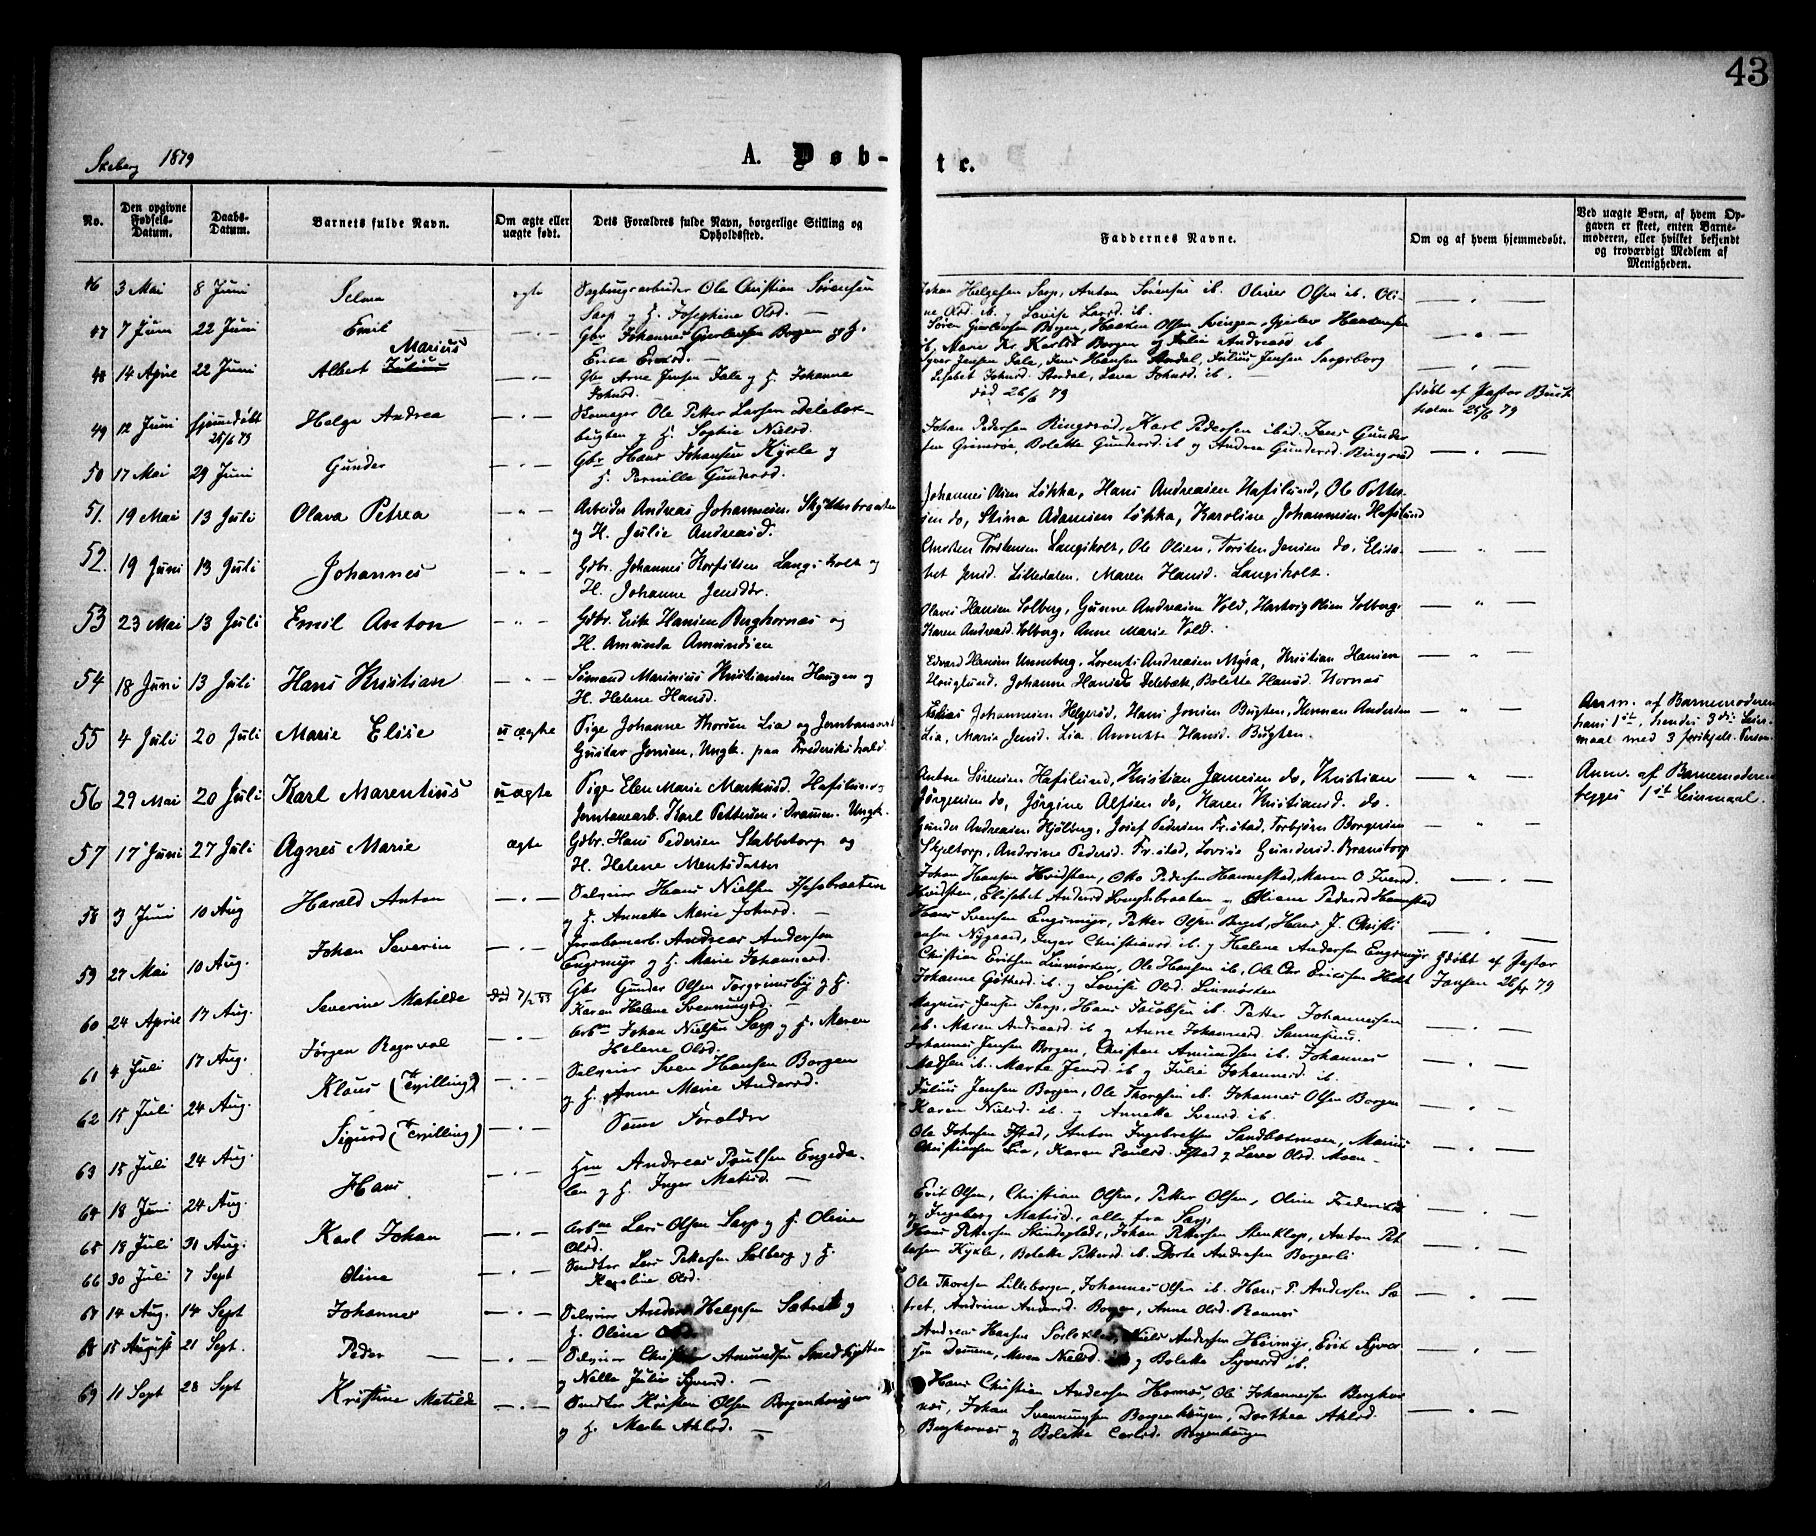 43
Skeberg 1879
A. Døb-
te.
No.
Den opgivne Fødsels-Datum.
Daabs-Datum.
Barnets fulde Navn.
Om ægte eller uægte født.
Dets Forældres fulde Navn, borgerlige Stilling og Opholdssted.
Faddernes Navne.
Om og af hvem hjemmedøbt.
Ved uægte Børn, af hvem Opgaven er skeet, enten Barnemoderen, eller hvilket bekjendt og troværdigt Medlem af Menigheden.
46 3 Mai 8 Juni Selma ægte Sagbrugsarbeider Ole Christian Sørensen
Sarp og H. Josephine Olsd. —
Johan Helgesen Sarp, Anton Sørensen ib. Oliver Olsen ib. Oli-
ne Olsd. ib. og Lovise Larsd. ib.
47 7 Juni 22 Juni Emil — Gbr. Johannes Gulliksen Borgen og H.
Erica Ericsd. —
48 14 April 22 Juni Albert Julius Marius Gbr Arne Jensen Dale og H. Johanne
Johnsd. —
død 26/6 79
49 12 Juni hjemmedøbt 25/6 79 Helga Andrea Skomager Ole Petter Larsen Delebæk-
bugten og H. Sophie Nielsd.
hdøbt af Pastor Buck
holm 25/6 79
50 17 Mai 29 Juni Gunder Gbr Hans Johansen Kykle og
H. Pernille Gundersd.
Johan Pedersen Ringsrød, Karl Pedersen ibid. Jens Gunder
sen Grimsøe, Bolette Gundersd. ib og Andrea Gundersd. Ringsrød
51. 19 Mai 13 Juli Olava Petrea Arbeider Andreas Johannesen Skytterbraaten
og H. Julie Andreasd.
Johannes Olsen Løkka, Hans Andreasen Hafslund, Ole Petter-
sen do, Stina Adamsen Løkka, Karoline Johannesen Hafslund
52. 19 Juni 13 Juli Johannes Gdbr. Johannes Torstensen Langsholt og
H. Johanne Jensdtr.
Christen Torstensen Langsholt, Ole Olsen, Torsten Jensen do, Elisa-
bet Jensd. Lilledalen. Maren Hansd. Langsholt.
53 23 Mai 13 Juli Emil Anton Gdbr. Erik Hansen Berghornæs og
H. Amunda Amundsen
Olaves Hansen Solberg, Gunne Andreasen Vold, Hartvig Olsen Solberg,
Karen Andreasd. Solberg, Anne Marie Vold.
54 18 Juni 13 Juli Hans Kristian Sømand Marinius Kristiansen Haugen og
H. Helene Hansd.
Edvard Hansen Unneberg, Lorents Andreasen Myra, Kristian Hansen
Houglund, Johanne Hansd. Delebæk, Bolette Hansd. Hornæs
55 4 Juli 20 Juli Marie Elise uægte Pige Johanne Thorsen Lia og Jernbanearb.
Gustav Jonsen, Ungk. paa Frederikshald
Johannesen Helgerød, Hans Jonsen Bugten, Herman Andersen
Lia, Marie Jensd. Lia Annette Hansd. Bugten.
Anm. af Barnemoderen
hans 1ste, hendes 3die Leier-
maal med 3 forskjell. Person.
56 29 Mai 20 Juli Karl Marentius uægte Pige Elen Marie Markusd. Hafslund og
Jernbanearb. Karl Pettersen i Drammen. Ungk.
Anton Sørensen Hafslund, Kristian Jansen do, Kristian
Jørgensen do, Jørgine Alfsen do, Karen Kristiansd. do.
Anm. af Barnemoderen
begges 1ste Leiermaal.
57 17 Juni 27 Juli Agnes Marie ægte Gdbr. Hans Pedersen Skabbetorp og
H. Helene Mentsdatter
Gunder Andreasen Hjølberg, Josef Pedersen Fr.stad, Torbjørn Borgersen
Skjeltorp, Andrine Pedersd. Fr.stad, Lovise Gundersd. Branstorp
58 3 Juni 10 Aug Harald Anton Selveier Hans Nielsen
og H. Annette Marie Johnsd. —
Johan Hansen Hvidsten, Otto Pedersen Hannestad, Maren O. Iversd.
59 27 Mai 10 Aug. Johan Severin Jernbanearb. Andreas Andersen
Engsmyr og H. Marie Johannesd.
Hans Svensen Engsmyr, Petter Olsen Berget, Hans J. Christi
ansen Nygaard, Inger Christiansd. ib. og Helene Andersen Engsmyr
60 24 April 17 Aug. Severine Matilde død 7/2 83 Gbr Gunder Olsen Torgrimsby og H.
Karen Helene Svenningsd. —
Johanne Gøthesd. ib. og Lovise Olsd. Linmorten
hdøbt af Pastor
Jansen 26/4 79
61 4 Juli 17 Aug. Jørgen Ragnval Arbm Johan Nielsen Sarp og H. Maren
Helene Olsd.
Magnus Jensen Sarp, Hans Jacobsen ib. Petter Johannesen
ib. Maren Andreasd. ib og Anne Johannesd. Sannesund.
62 15 Juli 24 Aug. Klaus (Tvilling) Selveier Sven Hansen Borgen
og H. Anne Marie Andersd.
Johannes Jensen Borgen, Christen Amundsen ib. Johannes
Madsen ib. Marte Jensd. ib og Julie Johannesd. ib.
63 15 Juli 24 Aug. Sigurd (Tvilling) Samme Forældre
Julius Jensen Borgen, Ole Thoresen ib. Johannes Olsen Borgen
Karen Nielsd. ib. og Annette Svensd. ib.
64 18 Juni 24 Aug. Hans Hm Andreas Poulsen Engeda-
len og H. Inger Matisd. —
Ole Johnsen Ystad, Anton Ingebretsen Sandbakmoen, Marius
Christiansen Lia, Karen Paulsd. Ystad og Lava Olsd. Moen —
65 18 Juli 31 Aug. Karl Johan Arbm Lars Olsen Sarp og H. Oline
Olsd.
Erik Olsen, Christian Olsen, Petter Olsen, Oline Frederiksd.
og Ingeborg Matisd., alle fra Sarp
66 30 Juli 7 Sept Oline Smeden Lars Pettersen Solberg og H.
Karoline Olsd.
Hans Pettersen Skindeplads, Johan Pettersen Stenklop, Anton Pet
tersen Kykle, Bolette Pettersd. ib. Dorte Andresen Borgerli
67 14 Aug. 14 Sept Johannes Selveier Anders Helgesen Sætret og
H. Oline Olsd.
Ole Thoresen Lilleborgen, Johannes Olsen ib. Hans P. Andersen Sæ
tret, Andrine Andersd. Borgen, Anne Olsd. Rannes
68 15 August 21 Sept. Peder — Selveier Christen Amundsen Smedhytten
og Nelle Julie Syversd. —
Andreas Hansen Niels Andersen Heimyr, Erik Syver
sen Dammene, Maren Nielsd. ib og Bolette Syversd ib.
69 11 Sept 28 Sept Kristine Matilde Smeden Kristen Olsen Borgenhaugen
og H. Marte Ahlsd. —
Hans Christian Andersen Hornæs, Ole Johannesen Berghor
næs, Johan Svenningsen Borgenhaugen, Dorthea Ahlsd.
Berghornæs og Bolette Carlsd. Borgenhaugen